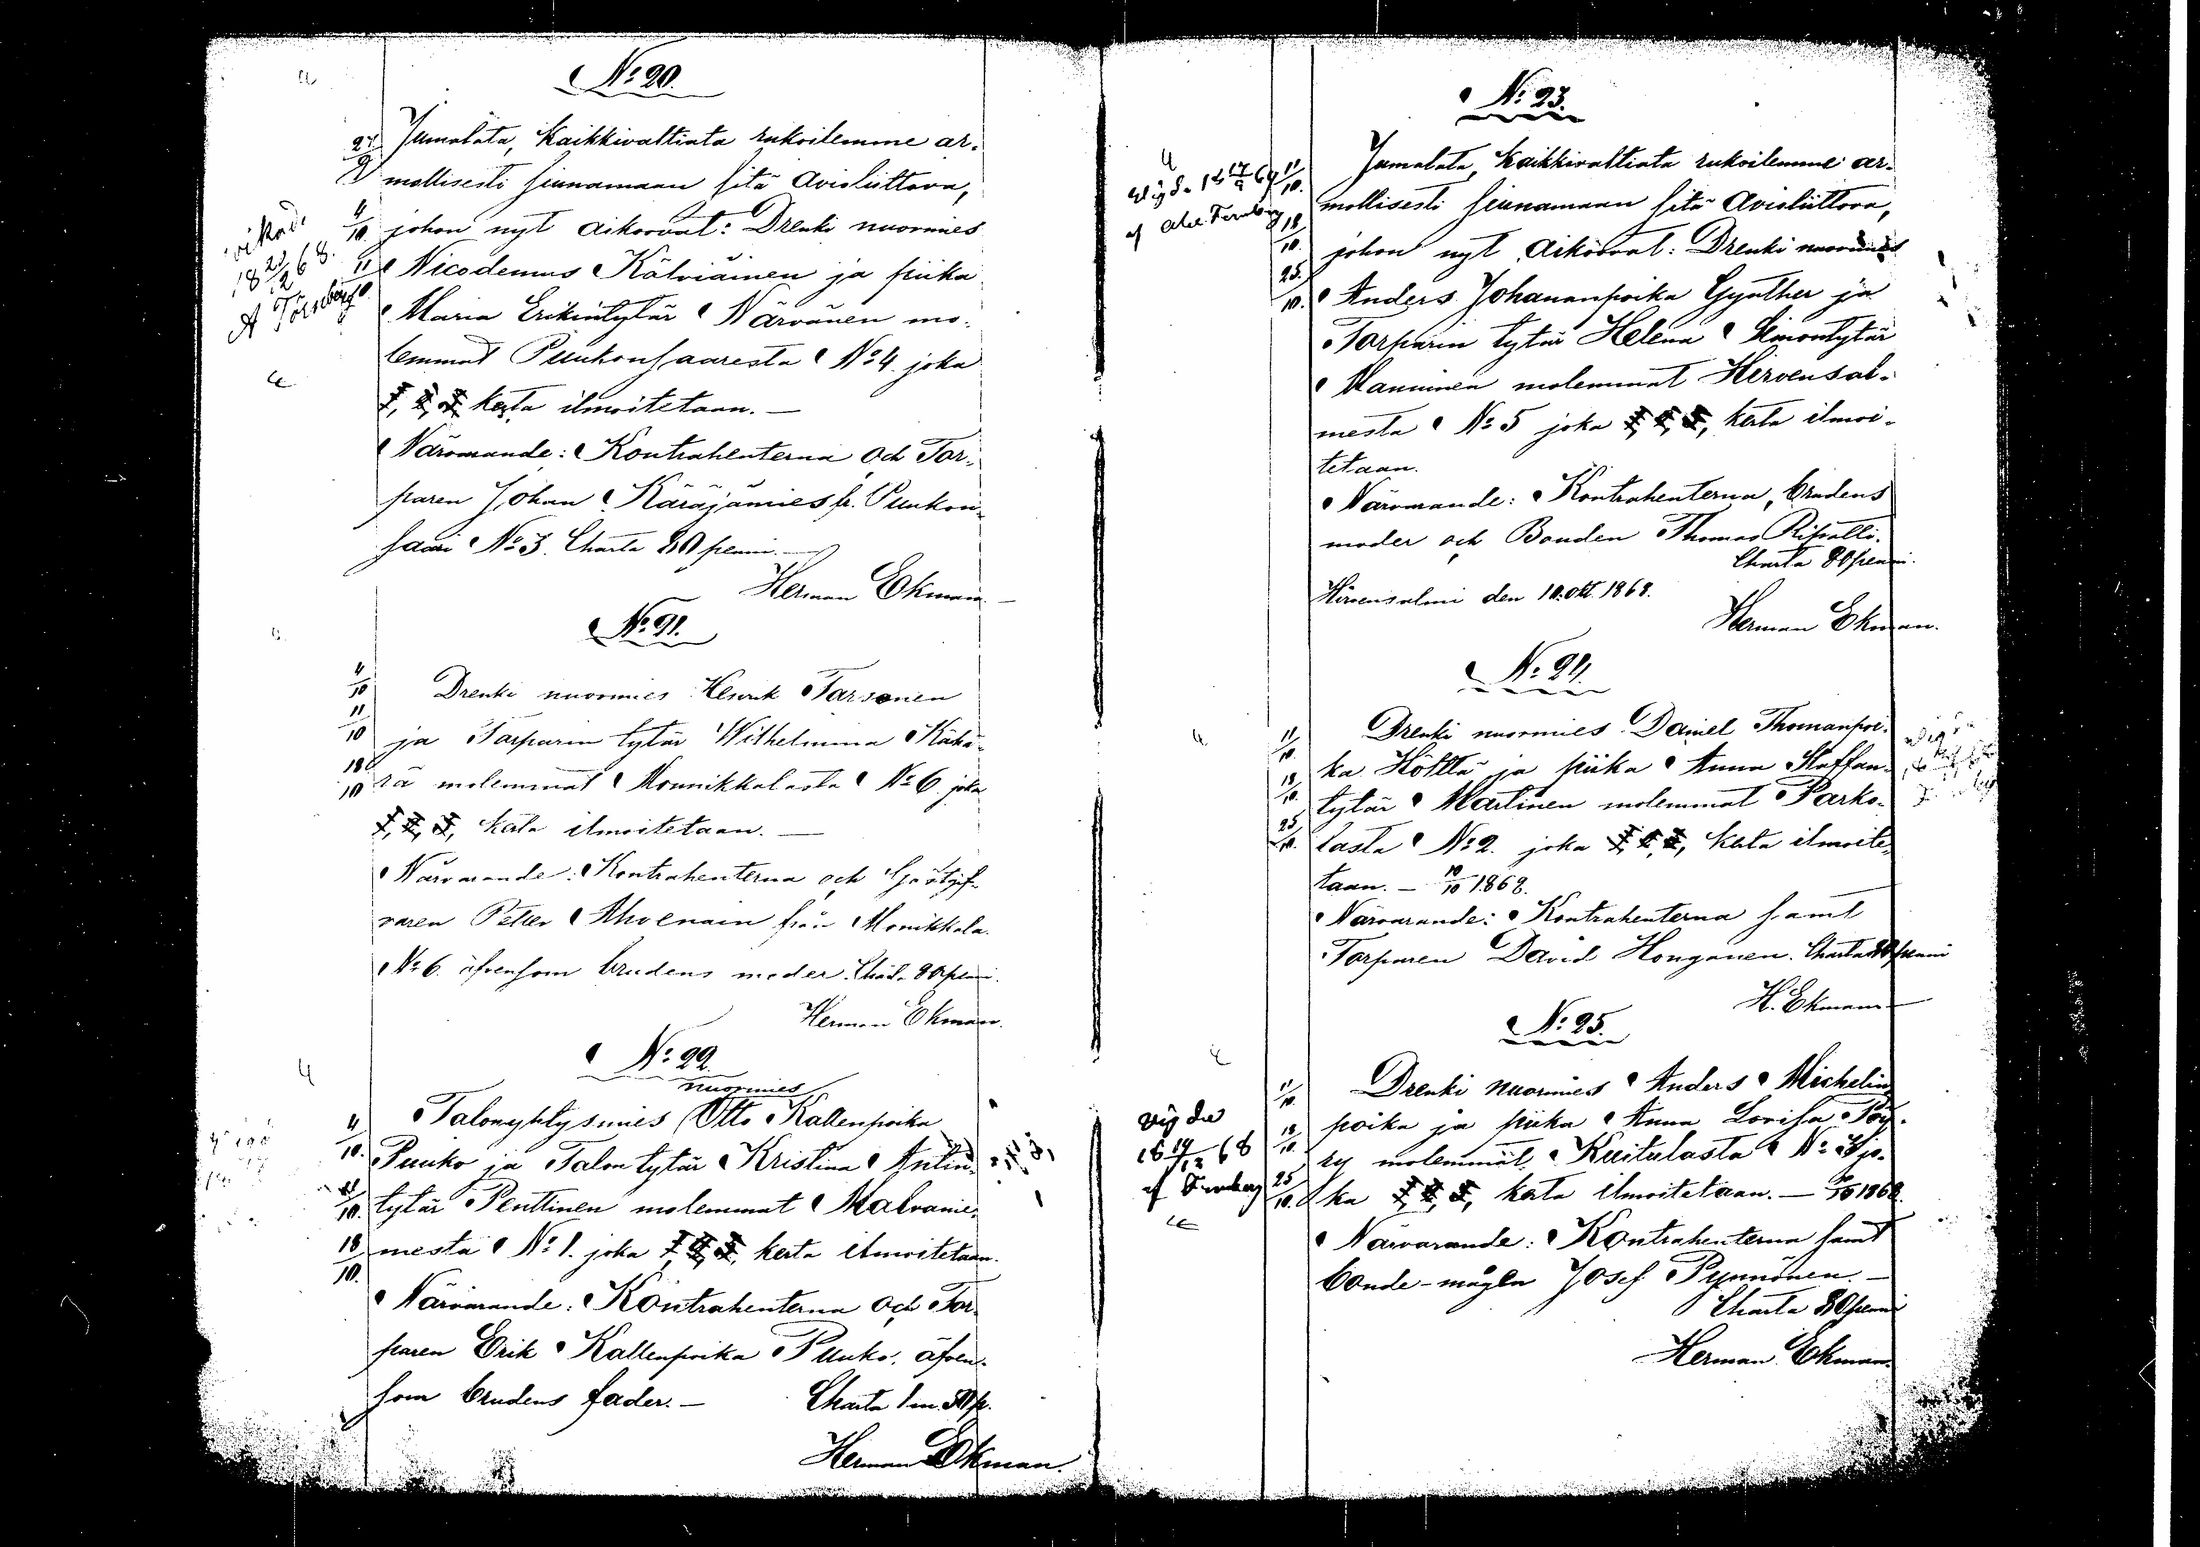 No: 20.
27/9
Jumalata, kaikkivaltiata rukoilemme ar-
mollisesti siunamaan sitä Avioliittova,
4/10 johon nyt aikoovat: Drenki nuormies
11 Nicodemus Kälviäinen ja piika
18 22/12 68.
Maria Erikintytär Närvänen mo-
lemmat Puukonsaaresta No 4. joka
I, II, III, kerta ilmoitetaan. —
Närvarande: Kontrahenterna och Tor-
paren Johan Käräjämies fr. Puukon-
saari No 3. Charta 80 penni. —
Herman Ekman
No: 21.
4/10 Drenki nuormies Henrik Tarsonen
11/10 ja Torparin tytär Wilhelmina Kähä-
18/10 rä molemmat Monnikkalasta No 6. joka
I, II, III, kerta ilmoitetaan. —
Närvarande: Kontrahenterna och Gästgif-
varen Petter Ahvenain från Monikkala
No 6. äfvensom brudens moder. Charta 80 penni.
Herman Ekman.
No: 22.
nuormies
4/10. Talonyhtysmies Otto Kallenpoika
Puuko ja Talon tytär Kristina Antin-
11/10. tytär Penttinen molemmat Malvanie-
18/10. mestä No 1. joka I, II, III, kerta ilmoitetaan.
Närvarande: Kontrahenterna och Tor-
paren Erik Kallenpoika Puuko, äfven-
som brudens fader. — Charta 1 m. 50 p.
Herman Ekman.
No: 23.
11/10. Jumalata, kaikkivaltiata rukoilemme ar-
mollisesti siunamaan sitä Avioliittova,
18/10. johon nyt aikoovat: Drenki nuormies
25/10. Anders Johananpoika Gynther ja
Torparin tytär Helena Simontytär
Manninen molemmat Hirvensal-
mesta No 5 joka I, II, III, kerta ilmoi-
tetaan.
Närvarande: Kontrahenterna, brudens
moder och Bonden Thomas Ripatti.
Charta 80 penni.
Hirvensalmi den 10. okt. 1868.
Herman Ekman.
No: 24.
11/10. Drenki nuormies Daniel Thomanpoi-
18/10. ka Höltta ja piika Anna Staffan-
tytär Martinen molemmat Parko-
25/10. lasta No 2. joka I, II, III, kerta ilmoite-
taan. — 10/10 1868.
Närvarande: Kontrahenterna samt
Torparen David Honganen. Charta 80 penni
H. Ekman
No: 25.
11/10. Drenki nuormies Anders Michelin
Vigde
18/10. poika ja piika Anna Lovisa Pöy-
18 19/12 68
ry molemmat Kuitulasta No jo-
25/10. ka I, II, III, kerta ilmoitetaan. — 10/10 1868.
Närvarande: Kontrahenterna samt
bonde-mågen Josef Pynnönen. —
Charta 80 penni
Herman Ekman.